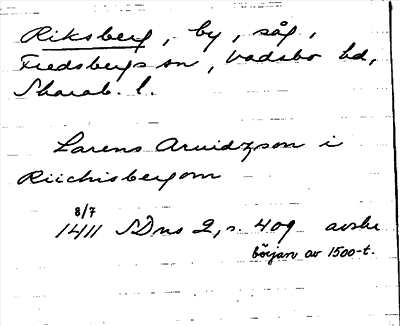 Riksberg, by, såg,
Fredsbergs sn, Vadsbo hd,
Skarab. l.
Larens Arvidzson i
Riichisbergom
8/7
1411 SDns 2, s. 409 avskr
början av 1500-t.